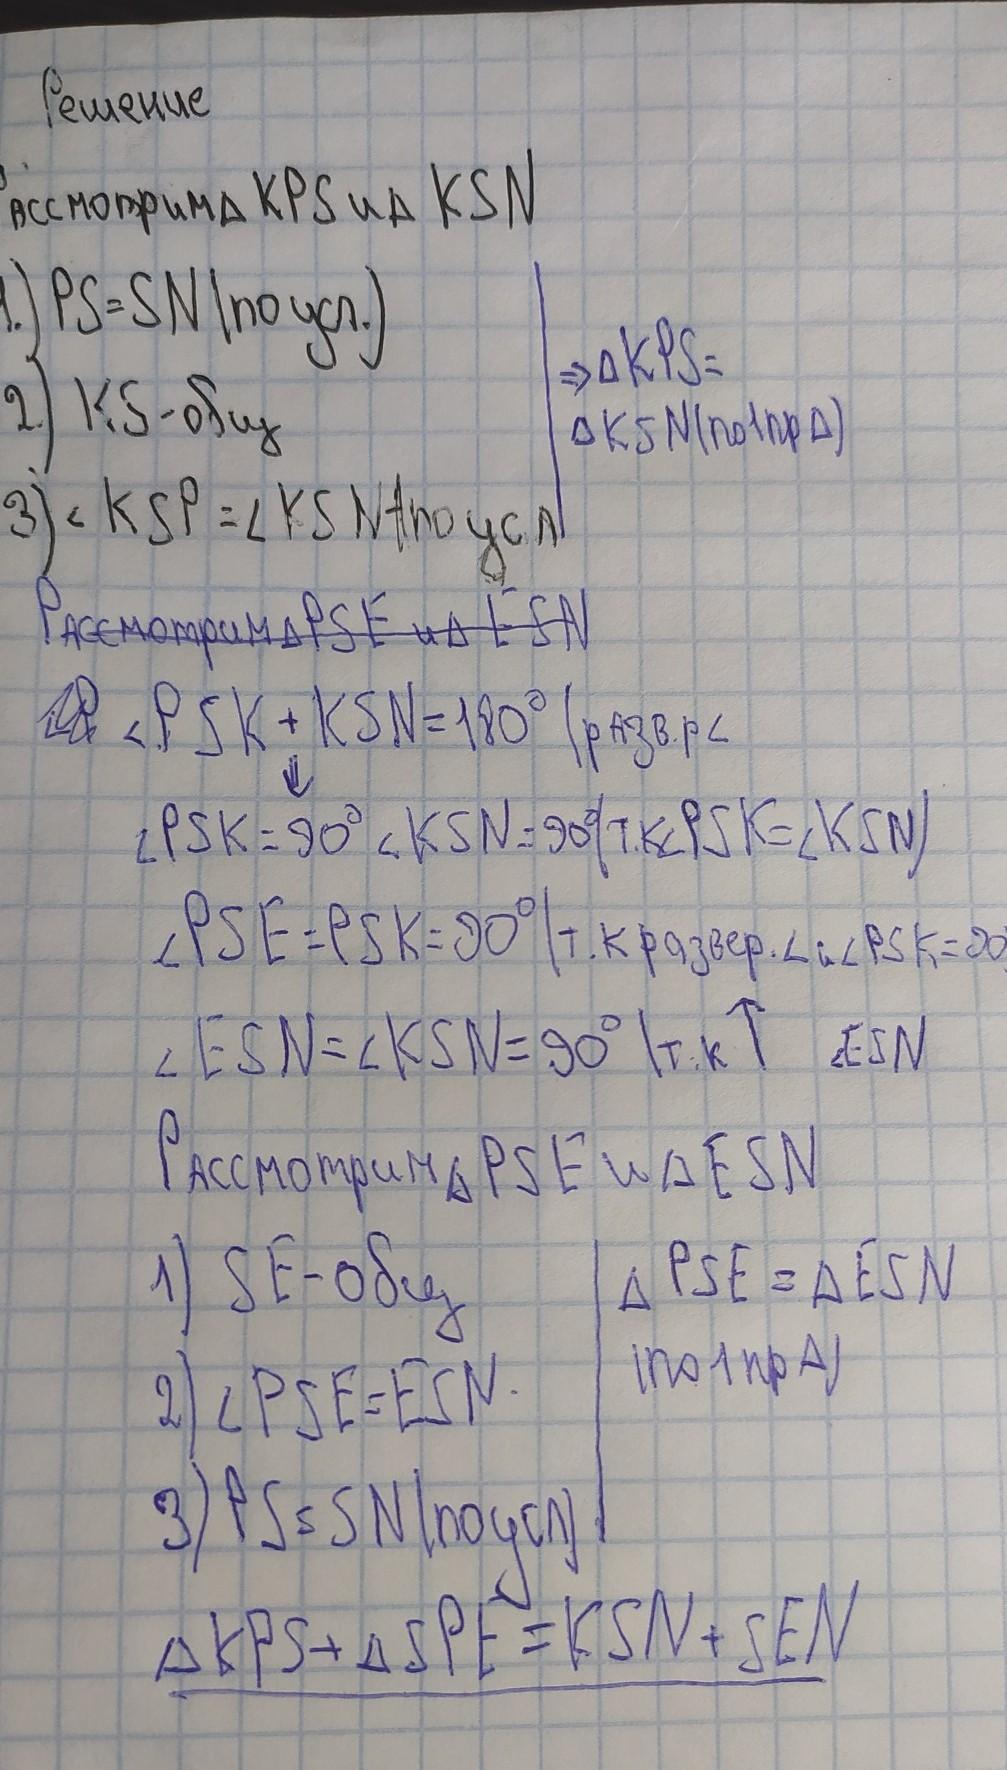 Решение
Рассмотрим △ KPS и △ KSN
1.) PS=SN (по усл.)
2.) KS-общ
3) ∠KSP=∠KSN (по усл
⇒ △KPS=
△KSN (по 1 пр △)
Рассмотрим △PSE и △ ESN
∠PSK + KSN=180° (разв.р∠
⇓
∠PSK=90° ∠KSN=90° (т.к ∠PSK=∠KSN)
∠PSE=PSK=90° (т.к развер.∠ и ∠PSK=90
∠ESN=∠KSN=90° (т.к ↑ ∠ESN
Рассмотрим △PSE и △ESN
1) SE-общ
2) ∠PSE=ESN.
3) PS=SN (по усл)
△ PSE = △ESN
(по 1 пр △)
△KPS+△SPE=KSN+SEN